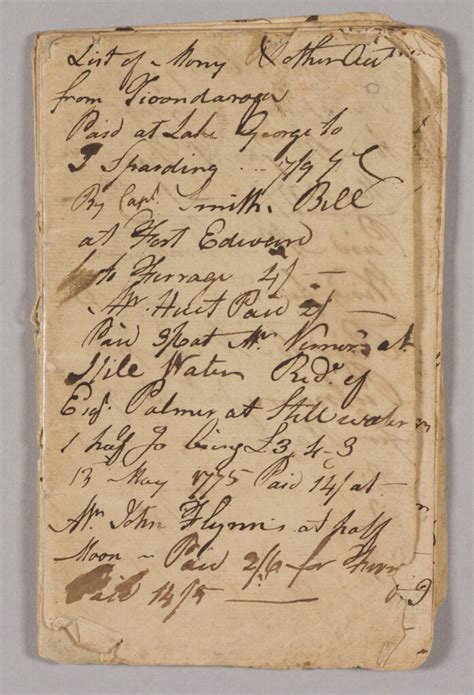 List of Mony & other Act
from Ticondaroga
Paid at Lake George to
J Sparding .. 7/9
By Capt. Smith, Bill
at Fort Edward
to Ferrage 4/ —
Mr. Huet Paid 2/ —
Paid 3/6 at Mr. at
Still Water Recd. of
Esqr. Palmer at Still water
1 half Jo being £3,4-3
13 May 1775 Paid 14/ at —
Mr. John Flynns at half
Moon — Paid 2/6 for
Paid 14/5 —